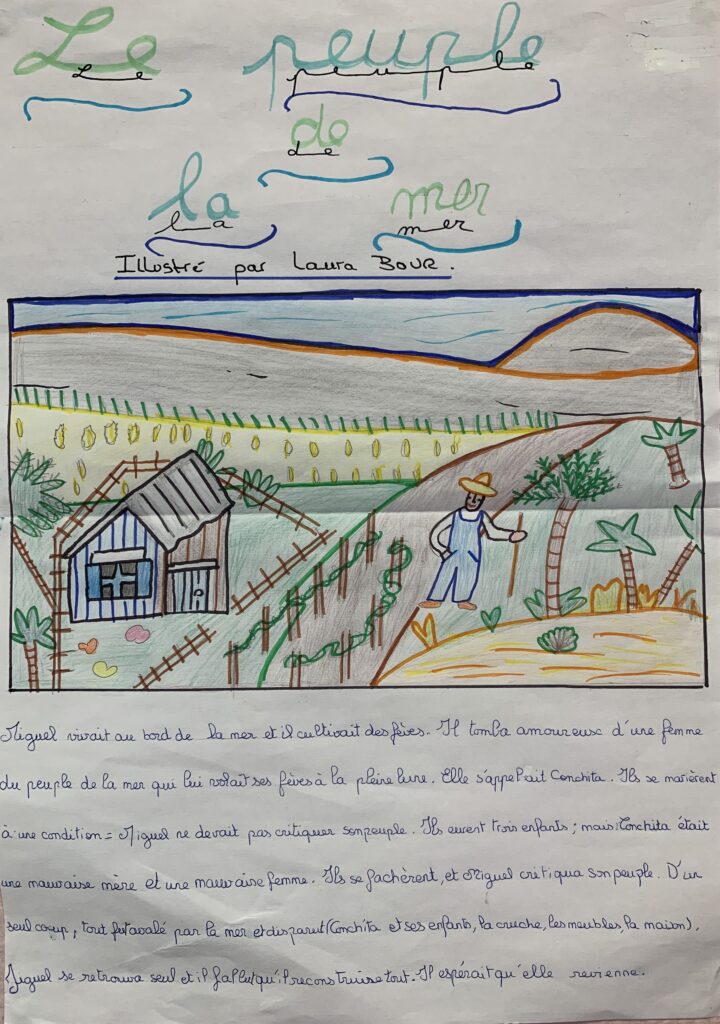 Le peuple
Le peuple
de
de
la mer
la mer
Illustré par Laura BOUR.
Miguel vivait au bord de la mer et il cultivait des fèves. Il tomba amoureuse d'une femme
du peuple de la mer qui lui volait ses fèves à la pleine lune. Elle s'appelait Conchita. Ils se marièrent
à une condition = Miguel ne devait pas critiquer son peuple. Ils eurent trois enfants ; mais Conchita était
une mauvaise mère et une mauvaise femme. Ils se fachèrent, et Miguel critiqua son peuple. D'un
seul coup, tout fut avalé par la mer et disparut (Conchita et ses enfants, la cruche, les meubles, la maison).
Miguel se retrouva seul et il fallut qu'il reconstruise tout. Il espérait qu'elle revienne.